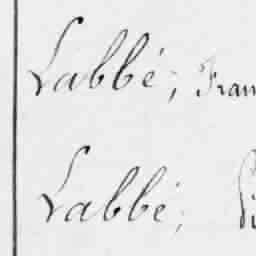 Labbé; Fran
Labbé;